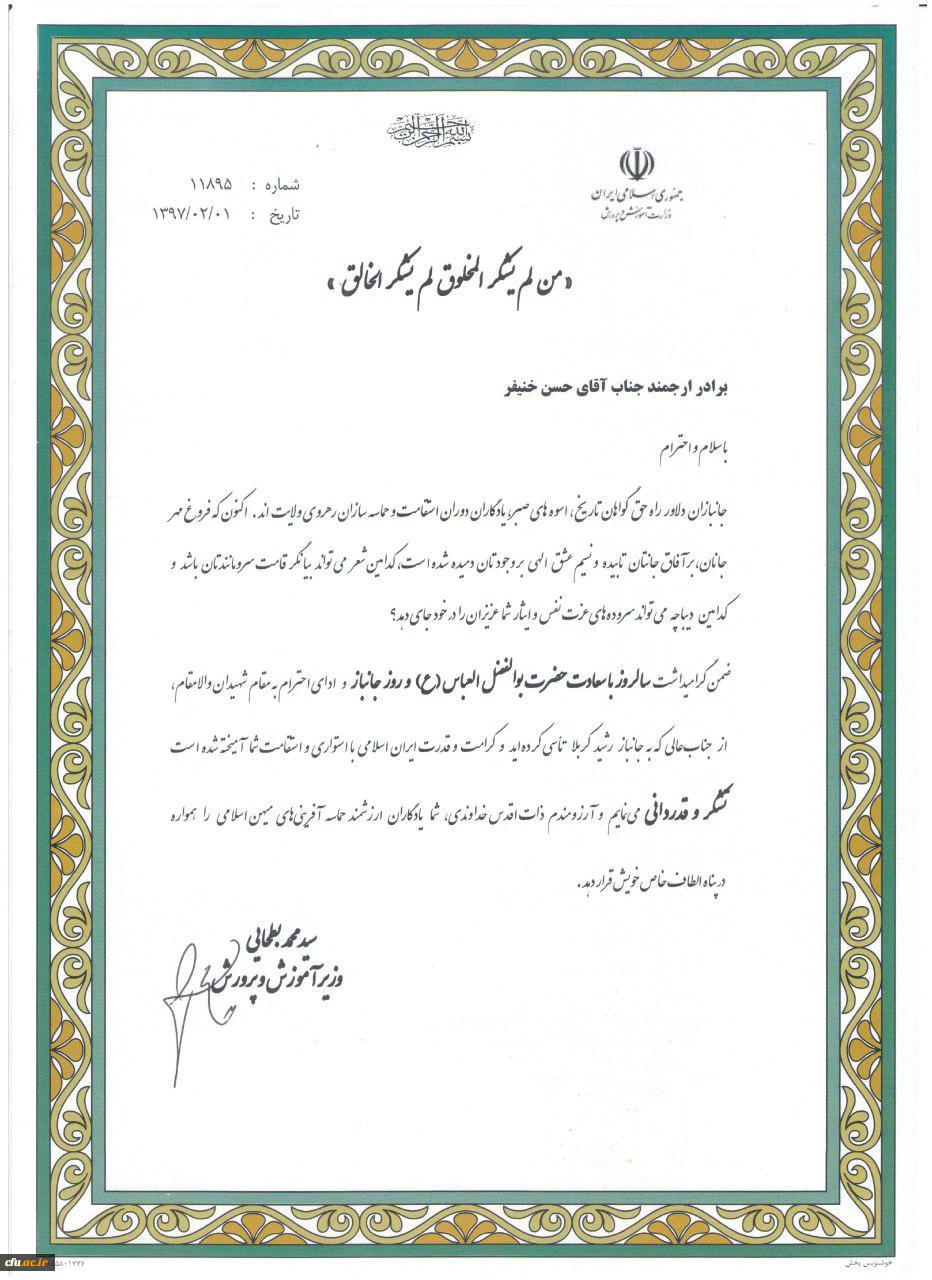 بسم الله الرحمن الرحیم
جمهوری اسلامی ایران
وزارت آموزش و پرورش
شماره : ۱۱۸۹۵
تاریخ : ۱۳۹۷/۰۲/۰۱
«من لم یشکر المخلوق لم یشکر الخالق»
برادر ارجمند جناب آقای حسن خنیفر
با سلام و احترام
جانبازان دلاور راه حق گواهان تاریخ، اسوه های صبر، یادگاران دوران استقامت و حماسه سازان رهروی ولایت اند. اکنون که فروغ مهر
جانان، بر آفاق جانتان تابیده و نسیم عشق الهی بر وجودتان دمیده شده است، کدامین شعر می تواند بیانگر قامت سرو مانندتان باشد و
کدامین دیباچه می تواند سروده های عزت نفس و ایثار شما عزیزان را در خود جای دهد؟
ضمن گرامیداشت سالروز با سعادت حضرت بوالفضل العباس (ع) و روز جانباز و ادای احترام به مقام شهیدان والامقام،
از جناب عالی که به جانباز رشید کربلا تاسی کرده اید و کرامت و قدرت ایران اسلامی با استواری و استقامت شما آمیخته شده است
تشکر و قدردانی می نمایم و آرزومندم ذات اقدس خداوندی، شما یادگاران ارزشمند حماسه آفرینی های میهن اسلامی را همواره
در پناه الطاف خاص خویش قرار دهد.
سید محمد بطحایی
وزیر آموزش و پرورش
خوشنویس پخش
cfu.ac.ir ۵۵۸۰۱۷۷۷